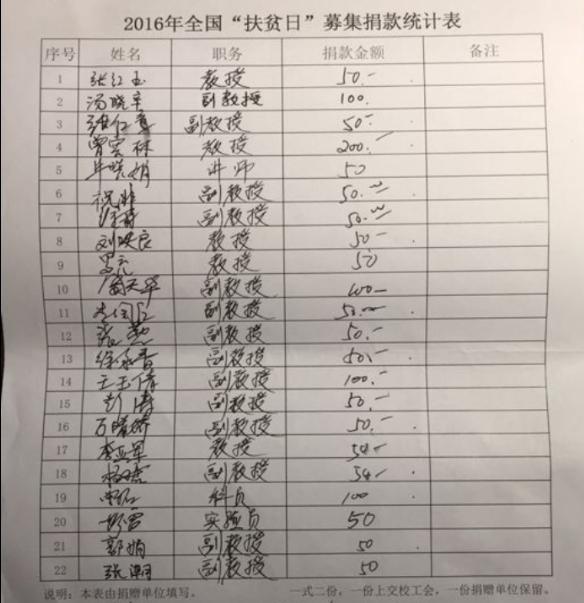 2016年全国“扶贫日”募集捐款统计表
序号 姓名 职务 捐款金额 备注
1 张红玉 教授 50.-
2 汤晓辛 副教授 100.
3 副教授 50.-
4 教授 200.-
5 讲师 50
6 祝 副教授 50.
7 副教授 50.
8 刘映良 教授 50-
9 罗 教授 50
10 副教授 100-
11 副教授 50.
12 张 副教授 50.-
13 徐 副教授 50.-
14 王玉倩 副教授 100.-
15 彭涛 副教授 50.-
16 万晴 副教授 50.-
17 李亚军 教授 50-
18 杨 副教授 50-
19 科员 100
20 实验员 50
21 郭娟 副教授 50
22 张 副教授 50
说明：本表由捐赠单位填写。 一式二份，一份上交校工会，一份捐赠单位保留。